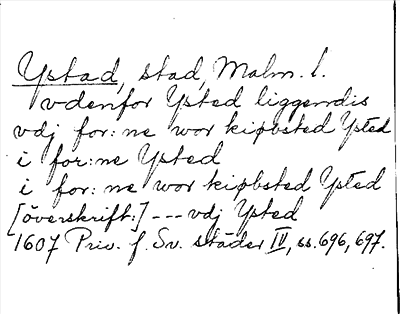 Ystad, stad, Malm. l.
vdenfor Ysted liggenndis
vdj for:ne wor kiøbsted Ysted
i for:ne Ysted
i for:ne wor kiøbsted Ysted
[överskrift:] --- vdj Ysted
1607 Priv. f. Sv. städer IV, ss. 696, 697.